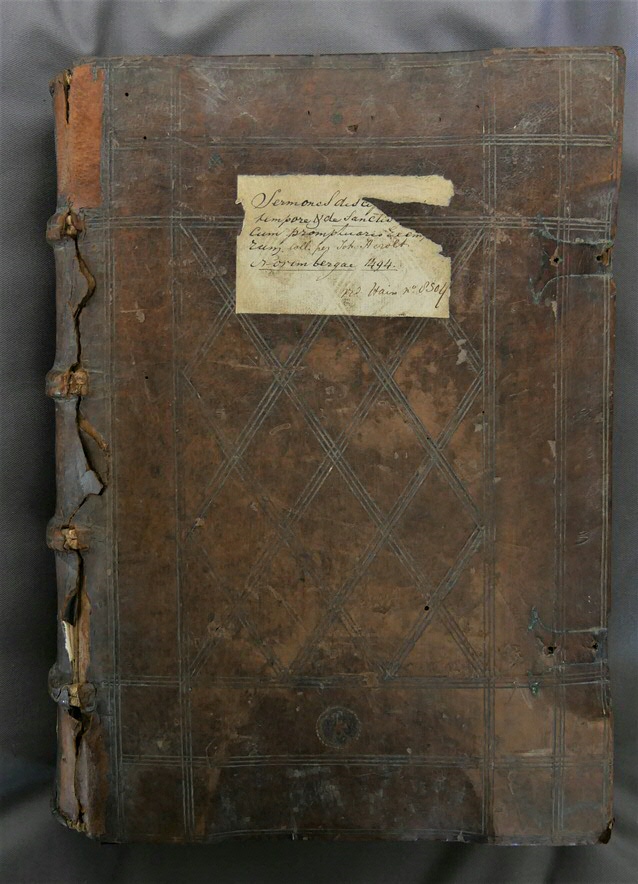 Sermones
tempore & de Sanctis
cum promptuario exem
coll. per Joh. Herolt.
Norimbergae 1494.
Hain Nº. 8504